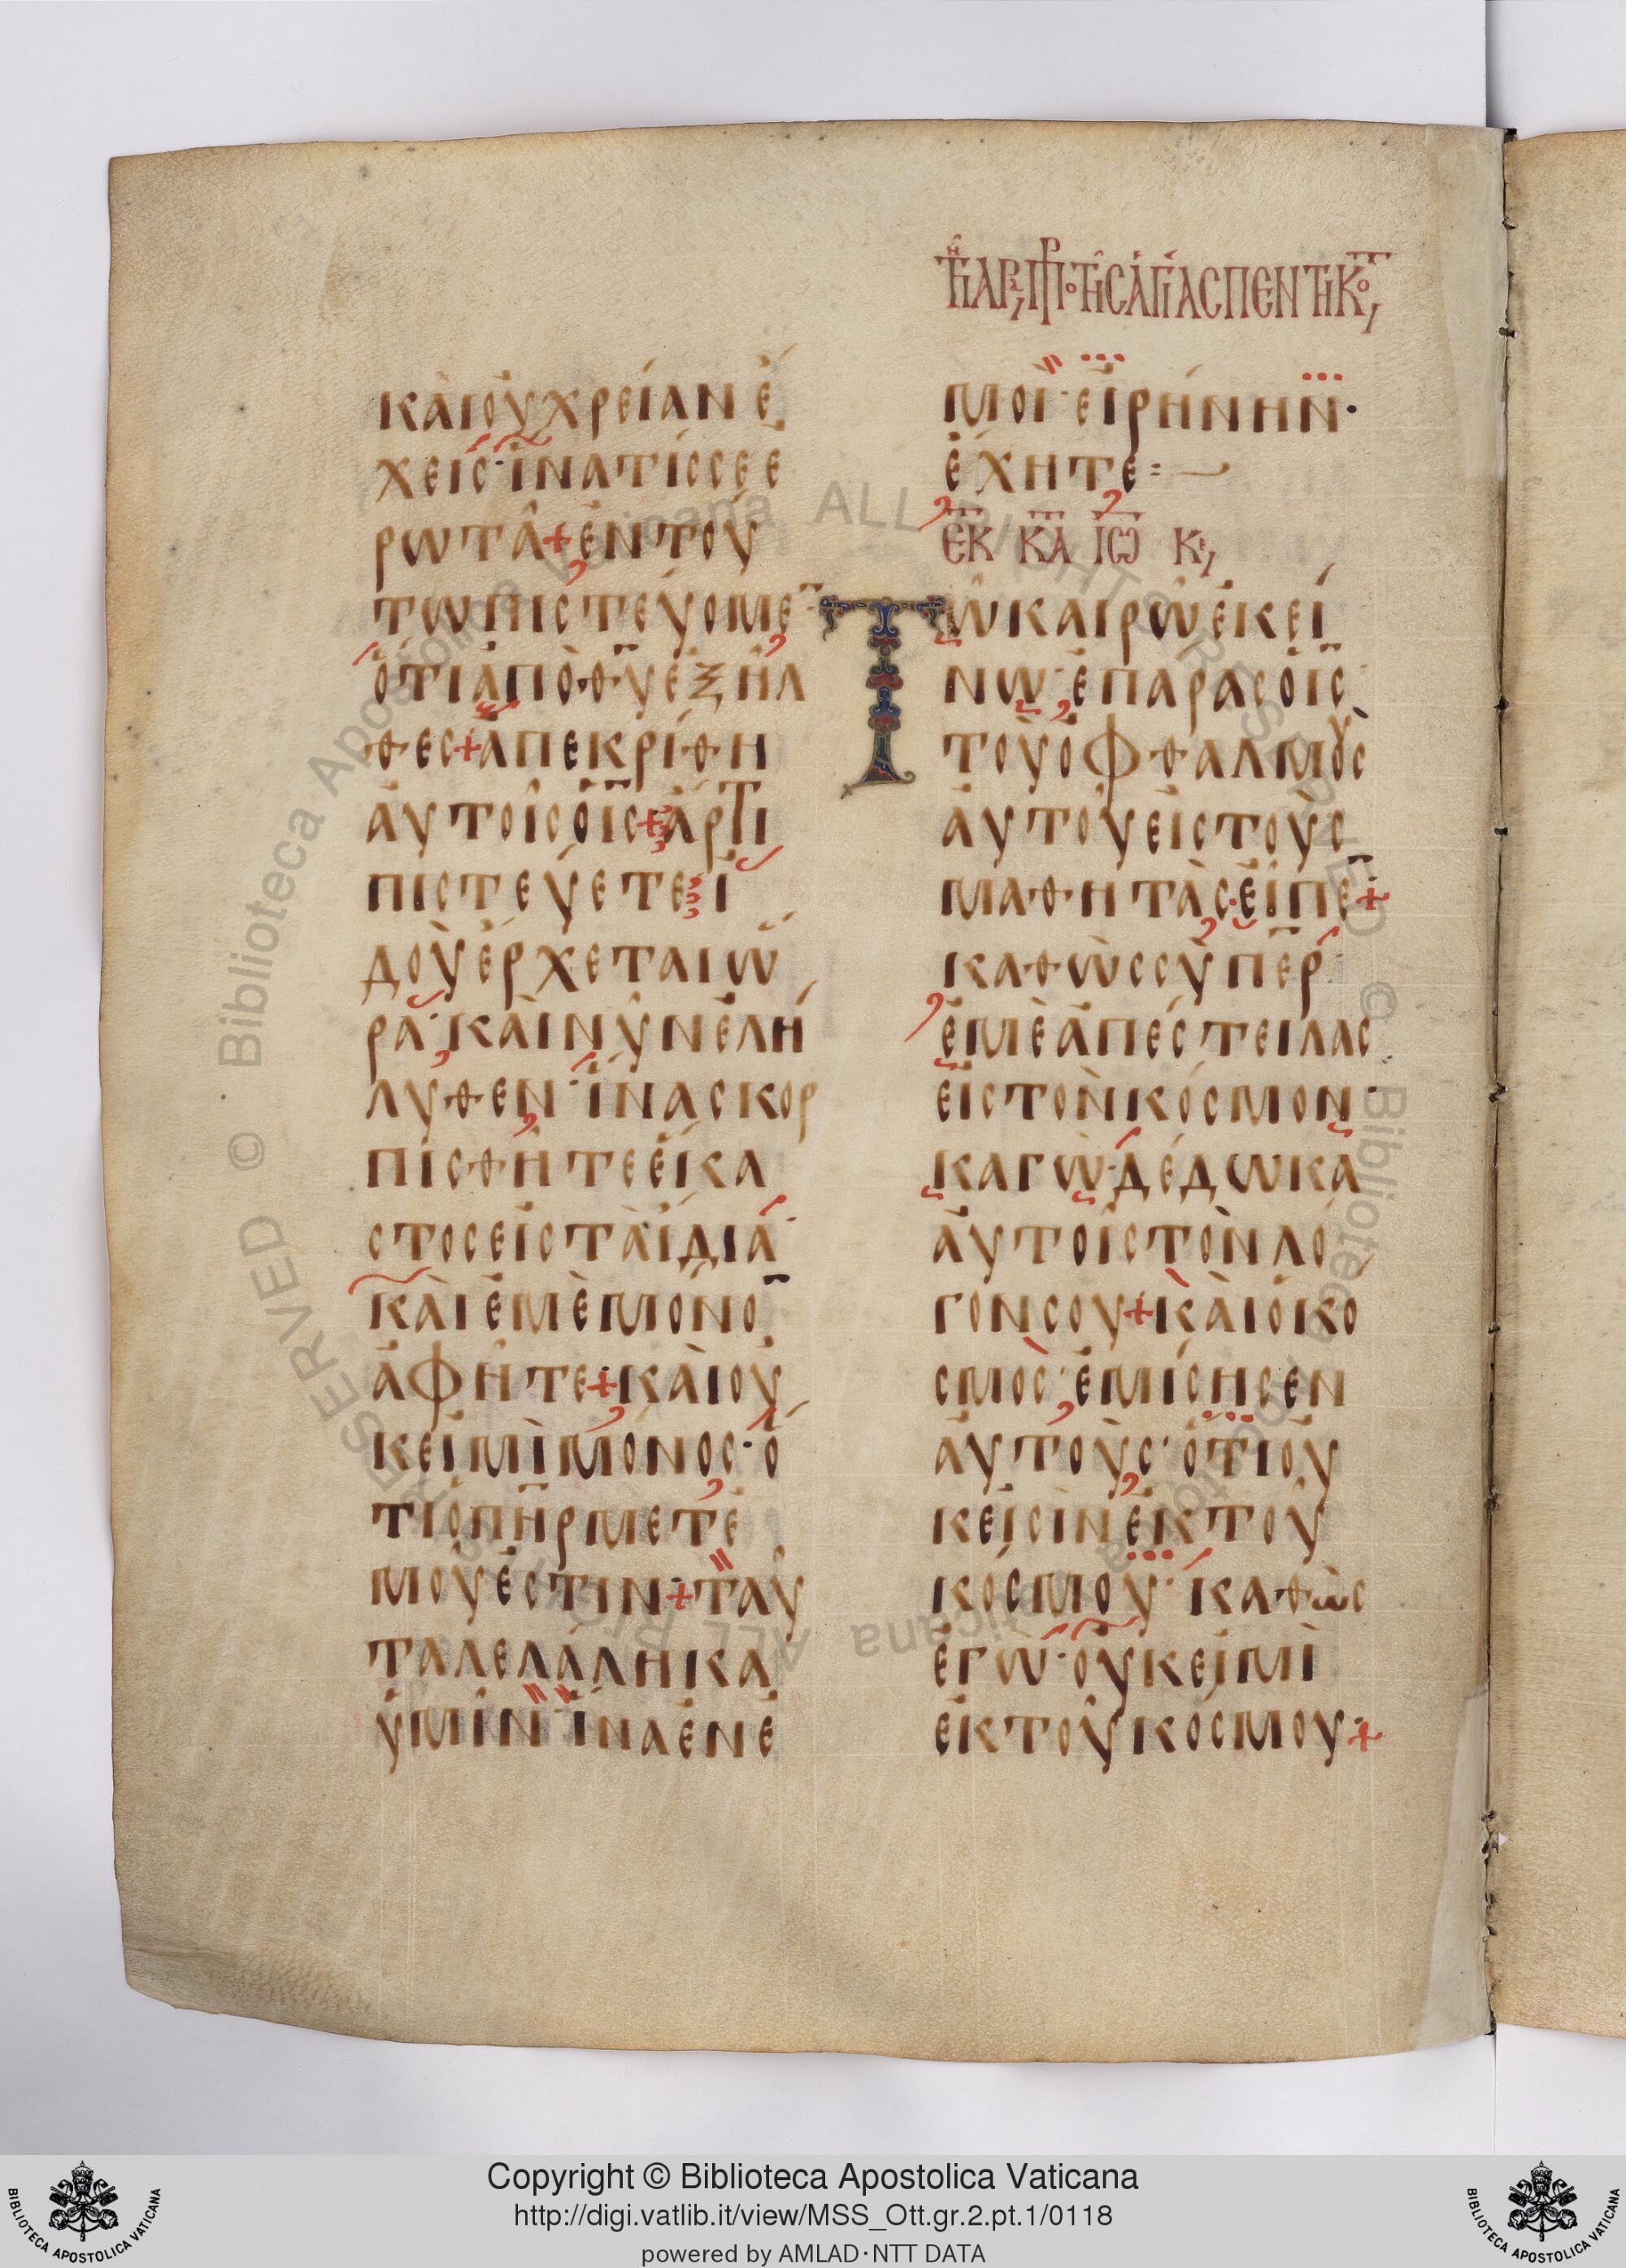 ΚΑΙΟΥΧΡΕΙΑΝΕ
ΧΕΙΣ·ΙΝΑΤΙΣΣΕΕ
ΡΩΤΑ+ΕΝΤΟΥ
ΤΩΠΙΣΤΕΥΟΜΕ
ΟΤΙΑΠΟΘΥΕΞΗΛ
ΘΕΣ+ΑΠΕΚΡΙΘΗ
ΑΥΤΟΙΣΟΙΣ+ΑΡΤΙ
ΠΙΣΤΕΥΕΤΕ Ι
ΔΟΥΕΡΧΕΤΑΙΩ
ΡΑ·ΚΑΙΝΥΝΕΛΗ
ΛΥΘΕΝ·ΙΝΑΣΚΟΡ
ΠΙΣΘΗΤΕΕΚΑ
ΣΤΟΣΕΙΣΤΑΙΔΙΑ·
ΚΑΙΕΜΕΜΟΝΟ
ΑΦΗΤΕ+ΚΑΙΟΥ
ΚΕΙΜΙΜΟΝΟΣ·Ο
ΤΙΟΠΗΡΜΕΤΕ
ΜΟΥΕΣΤΙΝ+ΤΑΥ
ΤΑΛΕΛΑΛΗΚΑ
ΥΜΙΝ·ΙΝΑΕΝΕ
ΜΟΙ·ΕΙΡΗΝΗΝ·
ΕΧΗΤΕ
ΕΚ ΚΑ ΙΩ Κ
ΤΩΚΑΙΡΩΕΚΕΙ
ΝΩ·ΕΠΑΡΑΣΟΙΣ
ΤΟΥΟΦΘΑΛΜΟΥΣ
ΑΥΤΟΥΕΙΣΤΟΥΣ
ΜΑΘΗΤΑΣ·ΕΙΠΕ+
ΚΑΘΩΣΣΥΠΕΡ
ΕΜΕΑΠΕΣΤΕΙΛΑΣ
ΕΙΣΤΟΝΚΟΣΜΟΝ·
ΚΑΓΩ·ΔΕΔΩΚΑ
ΑΥΤΟΙΣΤΟΝΛΟ
ΓΟΝΣΟΥ+ΚΑΙΟΚΟ
ΣΜΟΣ·ΕΜΙΣΗΣΕΝ
ΑΥΤΟΥΣ·ΟΤΙΟΥ
ΚΕΙΣΙΝΕΚΤΟΥ
ΚΟΣΜΟΥ·ΚΑΘΩΣ
ΕΓΩ·ΟΥΚΕΙΜΙ
ΕΚΤΟΥΚΟΣΜΟΥ+
Copyright © Biblioteca Apostolica Vaticana
http://digi.vatlib.it/view/MSS_Ott.gr.2.pt.1/0118
powered by AMLAD·NTT DATA
BIBLIOTECA APOSTOLICA VATICANA
BIBLIOTECA APOSTOLICA VATICANA